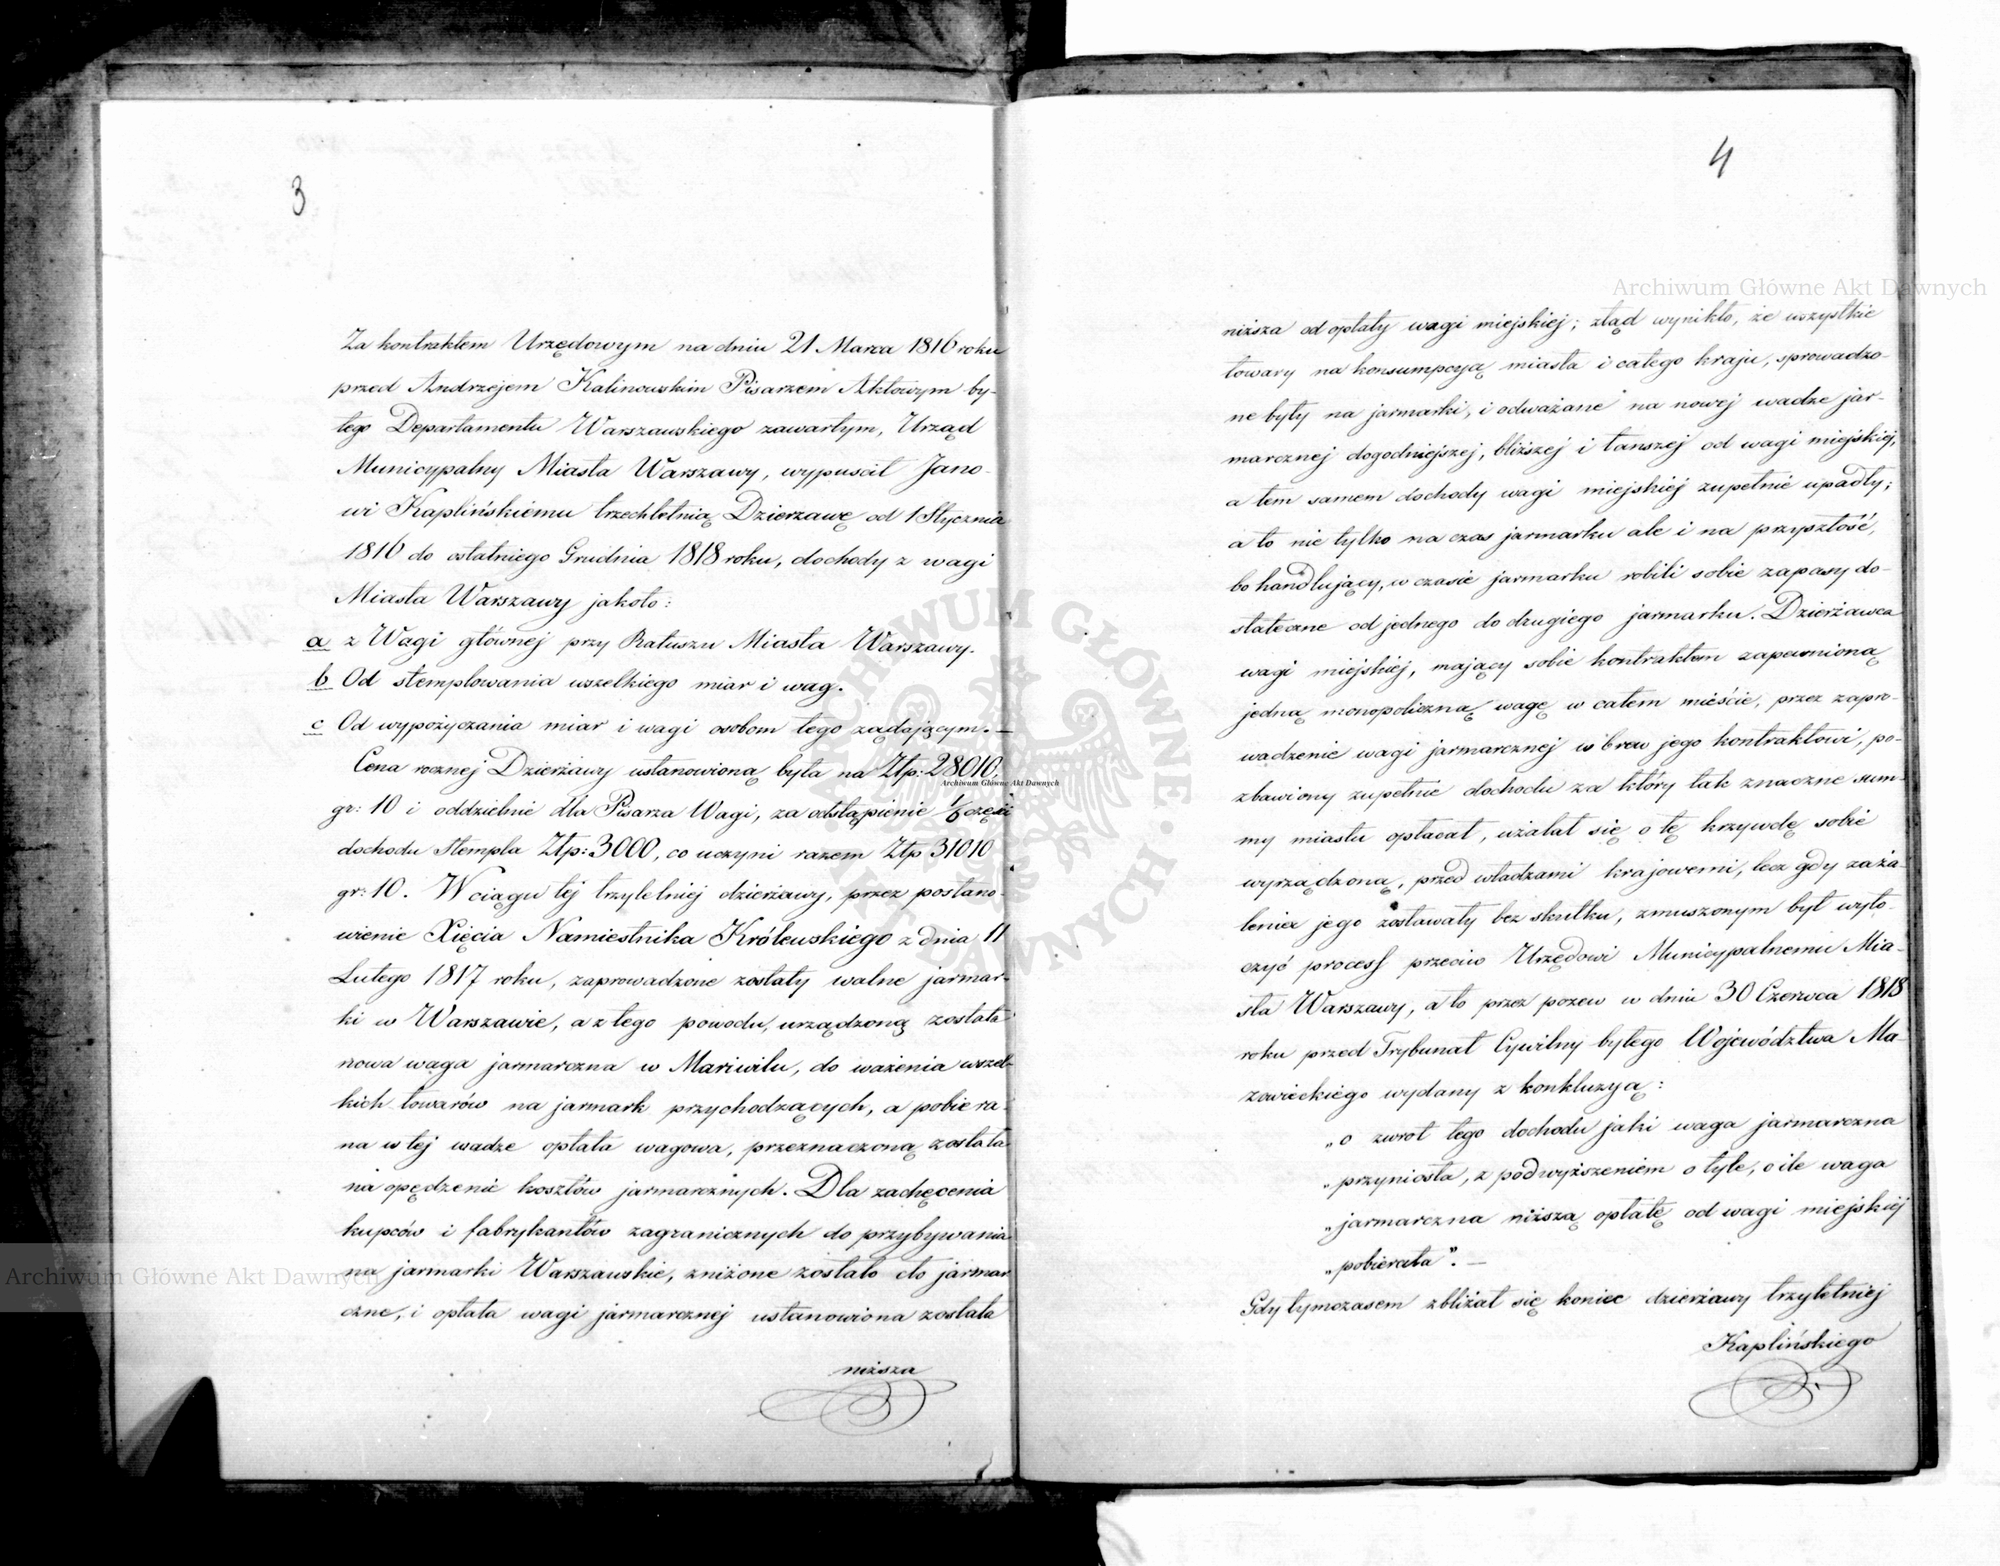 3
Za kontraktem Urzędowym na dniu 21 Marca 1816 roku
przed Andrzejem Kalinowskim Pisarzem Aktowym by-
łego Departamentu Warszawskiego zawartym, Urząd
Municypalny Miasta Warszawy, wypuscił Jano-
wi Kaplińskiemu trzechletnią Dzierzawę od 1 Stycznia
1816 do ostatniego Grudnia 1818 roku, dochody z wagi
Miasta Warszawy jakoto:
a z Wagi głównej przy Ratuszu Miasta Warszawy.
b Od stemplowania wszelkiego miar i wag.
c Od wypożyczania miar i wagi osobom tego żądającym. —
Cena rocznej Dzierżawy ustanowioną była na Złp: 28010,
gr: 10 i oddzielnie dla Pisarza Wagi, za odstąpienie 1/6 części
dochodu Stempla Złp: 3000, co uczyni razem Złp 31010
gr: 10. W ciągu tej trzyletniej dzierżawy, przez postano-
wienie Xięcia Namiestnika Królewskiego z dnia 11
Lutego 1817 roku, zaprowadzone zostały walne jarmar-
ki w Warszawie, a z tego powodu, urządzoną została
nowa waga jarmarczna w Mariwilu, do ważenia wszel-
kich towarów na jarmark przychodzących, a pobiera-
na w tej wadze opłata wagowa, przeznaczoną została
na opędzenie kosztów jarmarcznych. Dla zachęcenia
kupców i fabrykantów zagranicznych do przybywania
na jarmarki Warszawskie, zniżone zostało cło jarmar
czne, i opłata wagi jarmarcznej ustanowiona została
niższa
4
niższa od opłaty wagi miejskiej; ztąd wynikło, że wszystkie
towary na konsumpcyą miasta i całego kraju, sprowadzo-
ne były na jarmarki, i odważane na nowej wadze jar-
marcznej dogodniejszej, bliższej i tanszej od wagi miejskiej,
a tem samem dochody wagi miejskiej zupełnie upadły;
a to nie tylko na czas jarmarku ale i na przyszłość,
bo handlujący, w czasie jarmarku robili sobie zapasy do-
stateczne od jednego do drugiego jarmarku. Dzierżawca
wagi miejskiej, mający sobie kontraktem zapewnioną
jedną monopoliczną wagę w całem mieście, przez zapro-
wadzenie wagi jarmarcznej wbrew jego kontraktowi, po-
zbawiony zupełnie dochodu za który tak znaczne sum-
my miastu opłacał, użalał się o tę krzywdę sobie
wyrządzoną, przed władzami krajowemi, lecz gdy zaża
lenia jego zostawały bez skutku, zmuszonym był wyto-
czyć process przeciw Urzędowi Municypalnemu Mia-
sta Warszawy, a to przez pozew w dniu 30 Czerwca 1818
roku przed Trybunał Cywilny byłego Województwa Ma-
zowieckiego wydany z konkluzyą:
„o zwrot tego dochodu jaki waga jarmarczna
„przyniosła, z podwyższeniem o tyle, o ile waga
„jarmarczna niższą opłatę od wagi miejskiej
„pobierała”. —
Gdy tymczasem zbliżał się koniec dzierżawy trzyletniej
Kaplińskiego
Archiwum Główne Akt Dawnych
Archiwum Główne Akt Dawnych
Archiwum Główne Akt Dawnych
ARCHIWUM GŁÓWNE AKT DAWNYCH